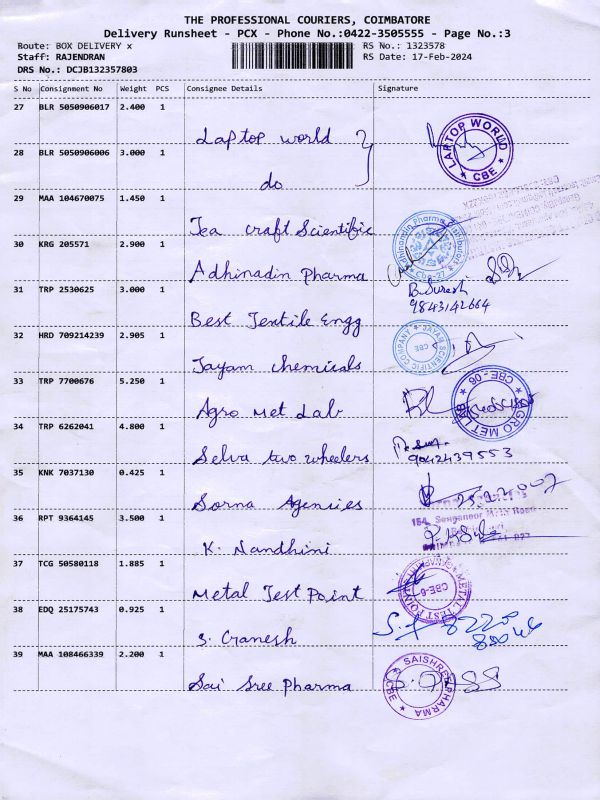 THE PROFESSIONAL COURIERS, COIMBATORE
Delivery Runsheet - PCX - Phone No.:0422-3505555 - Page No.:3
Route: BOX DELIVERY x
RS No.: 1323578
Staff: RAJENDRAN
RS Date: 17-Feb-2024
DRS No.: DCJB132357803
S No Consignment No Weight PCS Consignee Details Signature
27 BLR 5050906017 2.400 1
Laptop world
LAPTOP WORLD CBE
28 BLR 5050906006 3.000 1
do
29 MAA 104670075 1.450 1
Tea craft Scientific
30 KRG 205571 2.900 1
Adhinadin Pharma
31 TRP 2530625 3.000 1
B. Suresh
9843142664
Best Textile Engg
32 HRD 709214239 2.905 1
JAYAM SCIENTIFIC COMPANY CBE
Jayam chemicals
33 TRP 7700676 5.250 1
Agro Met Lab
AGRO MET LAB CBE-06
34 TRP 6262041 4.800 1
Selva two wheelers
9042439553
35 KNK 7037130 0.425 1
Sorna Agencies
36 RPT 9364145 3.500 1
K. Nandhini
37 TCG 50580118 1.885 1
Metal Test Point
METAL TEST POINT CBE-6
38 EDQ 25175743 0.925 1
S. Ganesh
39 MAA 108466339 2.200 1
Sai Sree Pharma
SAISHREE PHARMA CBE